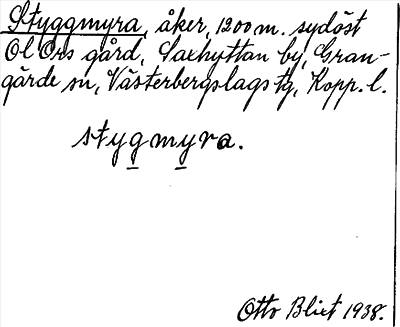 Styggmyra, åker, 1200 m. sydöst
Ol Ors gård, Saxhyttan by, Gran-
gärde sn, Västerbergslags tg, Kopp. l.
stygmyra.
Otto Blixt 1938.